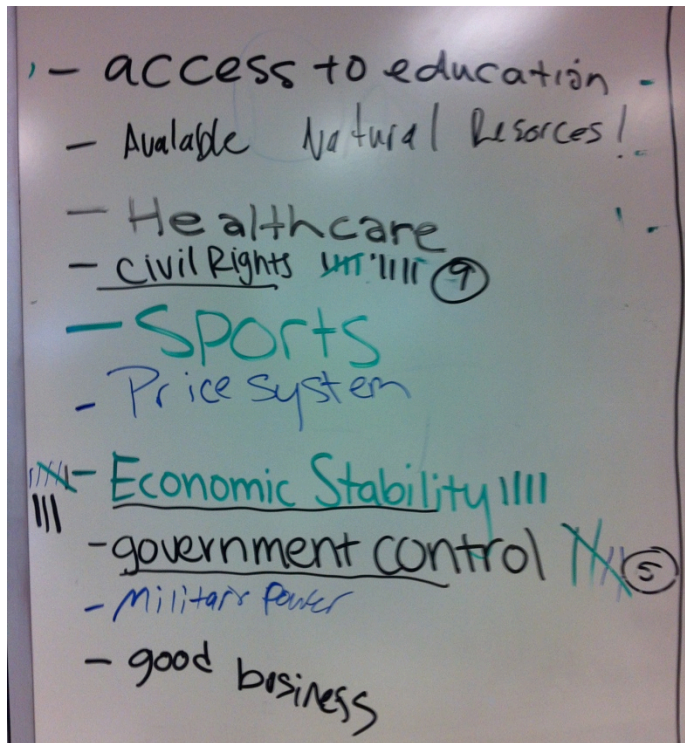 - access to education
- Avalable Natural Resorces!
- Healthcare
- Civil Rights 9
- Sports
- Price system
- Economic Stability
- government control 5
- Military Power
- good business